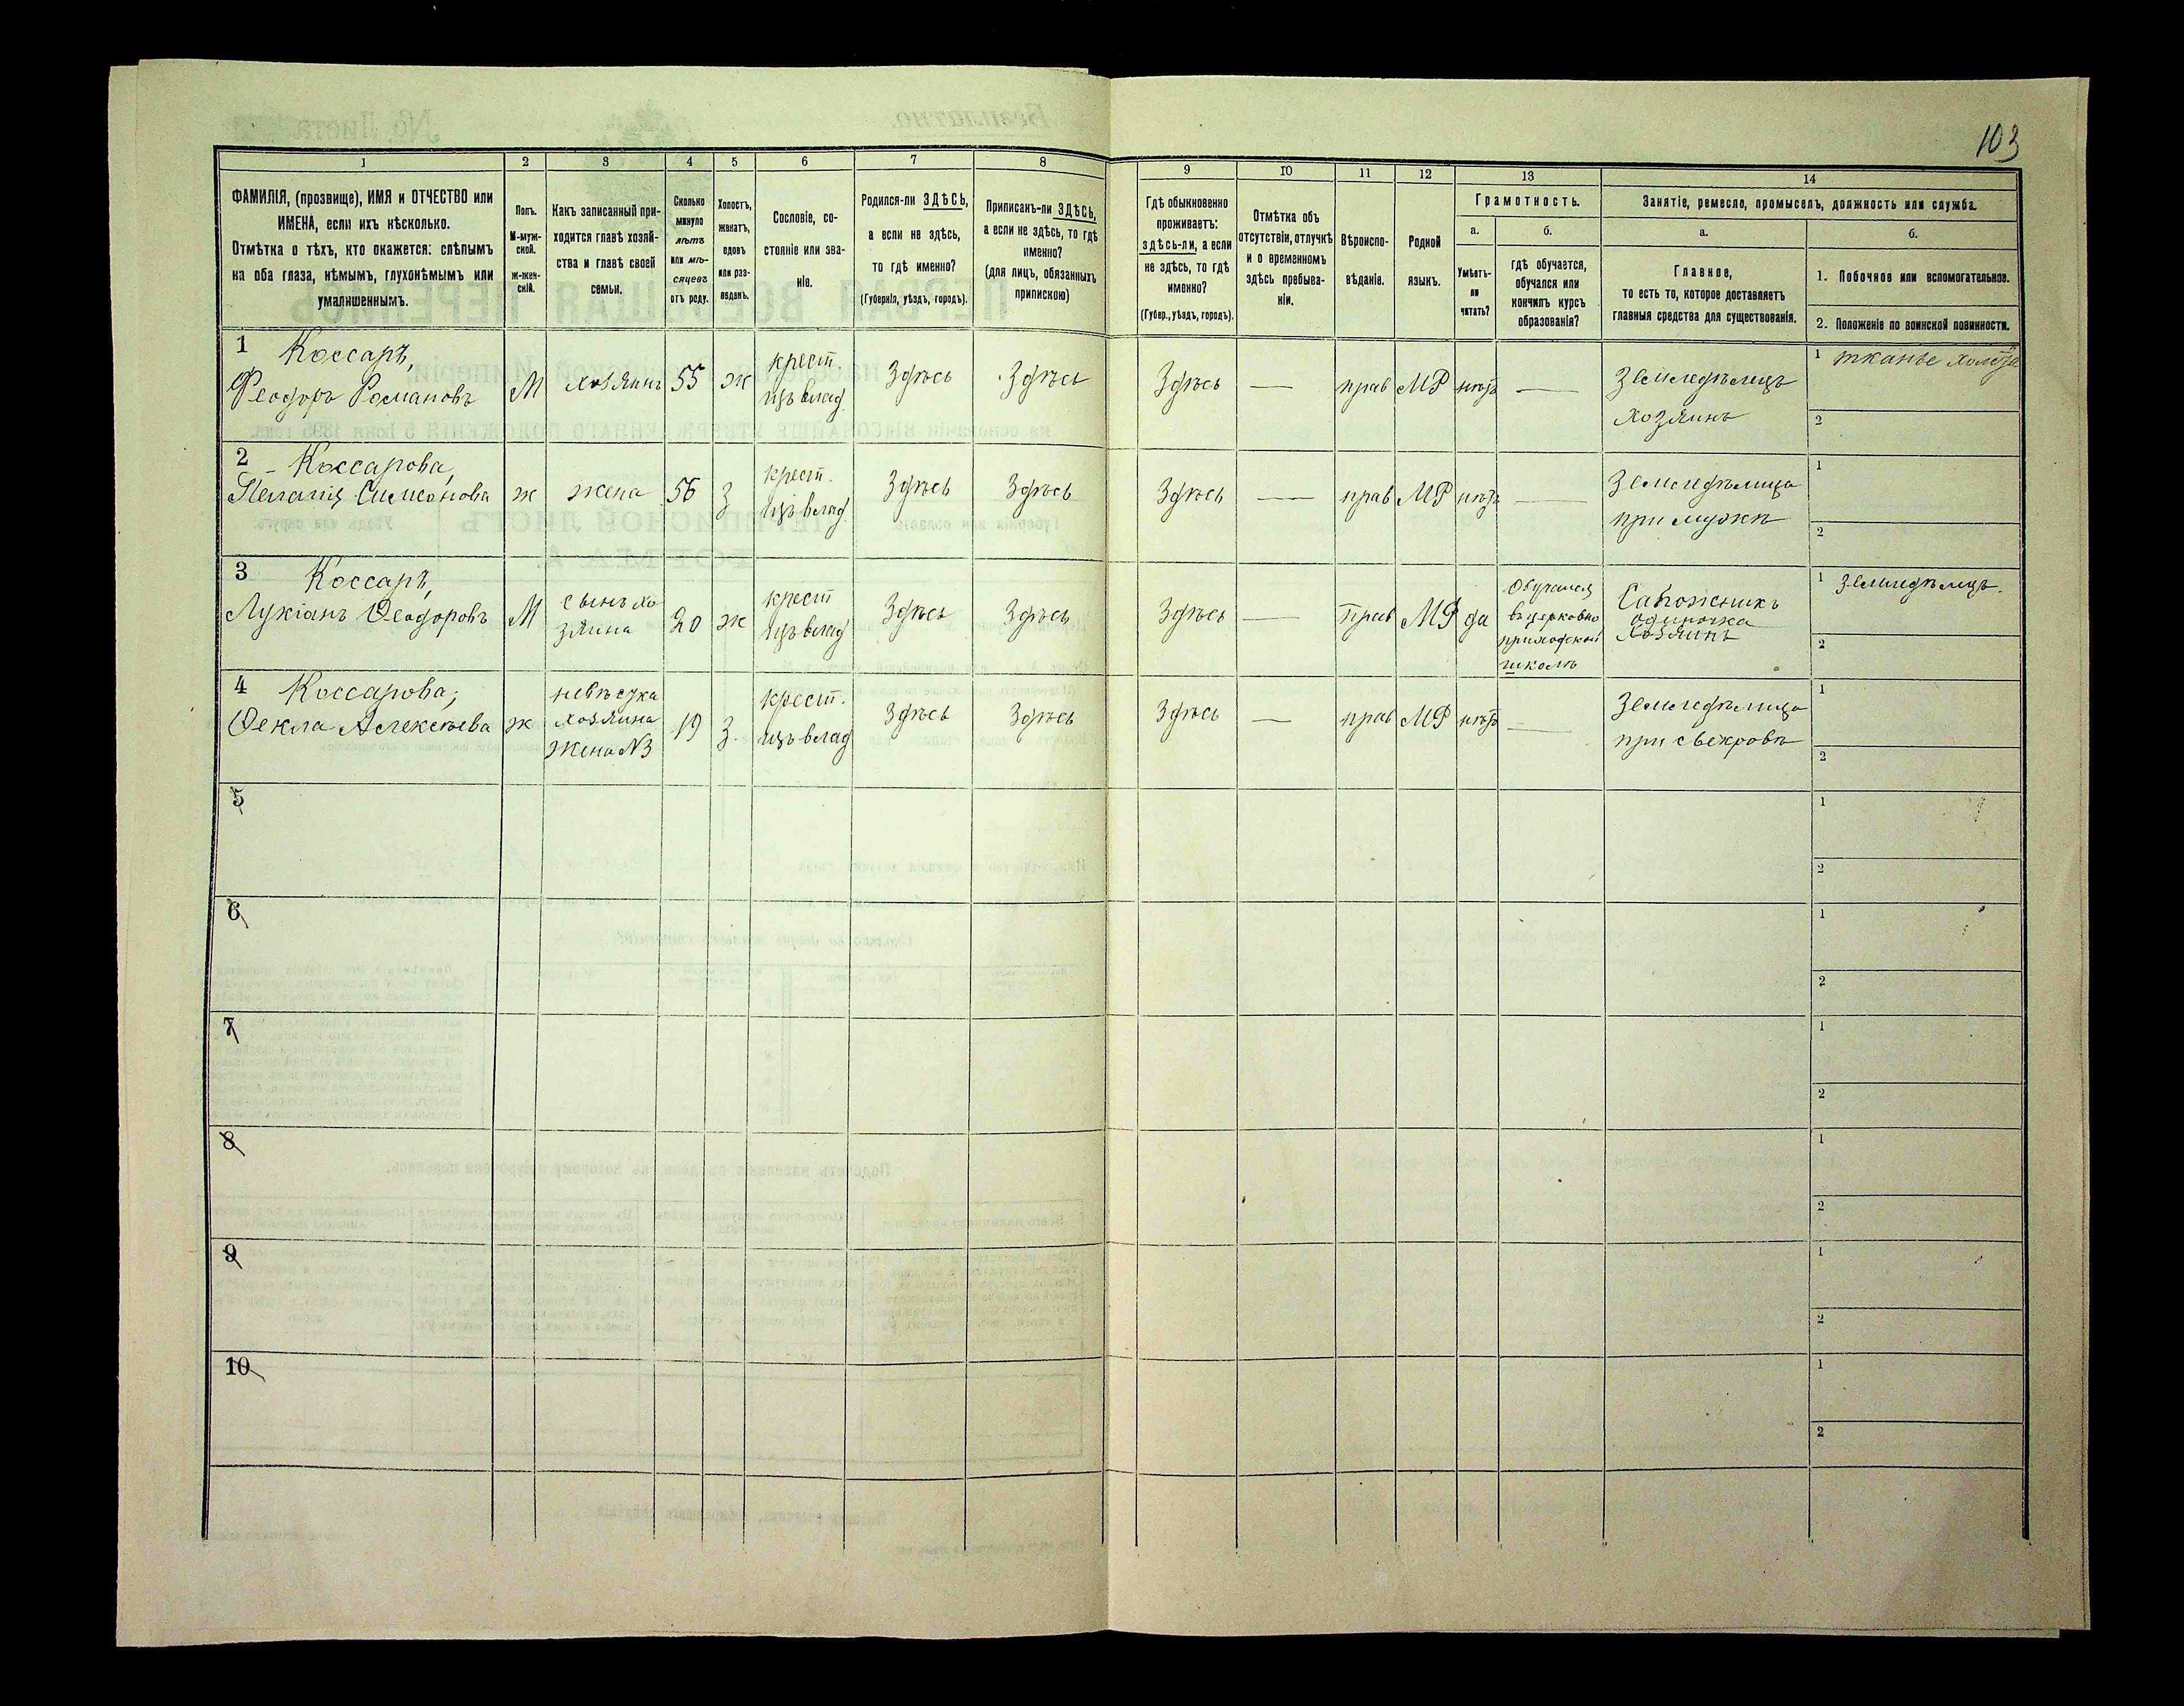 103
1
2
3
4
5
6
7
8
9
10
11
12
13
14
ФАМИЛІЯ, (прозвище), ИМЯ и ОТЧЕСТВО или
ИМЕНА, если ихъ нѣсколько.
Отмѣтка о тѣхъ, кто окажется: слѣпымъ
на оба глаза, нѣмымъ, глухонѣмымъ или
умалишеннымъ.
Полъ.
М-муж-
ской.
Ж-жен-
скій.
Какъ записанный при-
ходится главѣ хозяй-
ства и главѣ своей
семьи.
Сколько
минуло
лѣтъ
или мѣ-
сяцевъ
отъ роду.
Холостъ,
женатъ,
вдовъ
или раз-
веденъ.
Сословіе, со-
стояніе или зва-
ніе.
Родился-ли ЗДѢСЬ,
а если не здѣсь,
то гдѣ именно?
(Губернія, уѣздъ, городъ).
Приписанъ-ли ЗДѢСЬ,
а если не здѣсь, то гдѣ
именно?
(для лицъ, обязанныхъ
припискою)
Гдѣ обыкновенно
проживаетъ:
здѣсь-ли, а если
не здѣсь, то гдѣ
именно?
(Губер., уѣздъ, городъ).
Отмѣтка объ
отсутствіи, отлучкѣ
и о временномъ
здѣсь пребыва-
ніи.
Вѣроиспо-
вѣданіе.
Родной
языкъ.
Грамотность.
а.
Умѣетъ-
ли
читать?
б.
гдѣ обучается,
обучался или
кончилъ курсъ
образованія?
Занятіе, ремесло, промыселъ, должность или служба.
а.
Главное,
то есть то, которое доставляетъ
главныя средства для существованія.
б.
1. Побочное или вспомогательное.
2. Положеніе по воинской повинности.
1 Коссаръ,
Феодоръ Романовъ
М
хозяинъ
55
ж
крест
изъ влад.
Здѣсь
Здѣсь
Здѣсь
—
прав
МР
нѣтъ
—
Земледѣлецъ
хозяинъ
1 тканье
2
2 Коссарова,
Пелагія Симеонова
ж
жена
56
з
крест.
изъ влад.
Здѣсь
Здѣсь
Здѣсь
—
прав
МР
нѣтъ
—
Земледѣлица
при мужѣ
1
2
3 Коссаръ,
Лукіанъ Ѳеодоровъ
М
сынъ хо
зяина
20
ж
крест
изъ влад
Здѣсь
Здѣсь
Здѣсь
—
прав
МР
да
Обучался
въ церковно
приходской
школѣ
Сапожникъ
одиночка
хозяинъ
1 Земледѣлецъ.
2
4 Коссарова,
Ѳекла Алексѣева
ж
невѣстка
хозяина
жена №3
19
з.
крест.
изъ влад
Здѣсь
Здѣсь
Здѣсь
—
прав
МР
нѣтъ
—
Земледѣлица
при свекровѣ
1
2
5
1
2
6
1
2
7
1
2
8
1
2
9
1
2
10
1
2